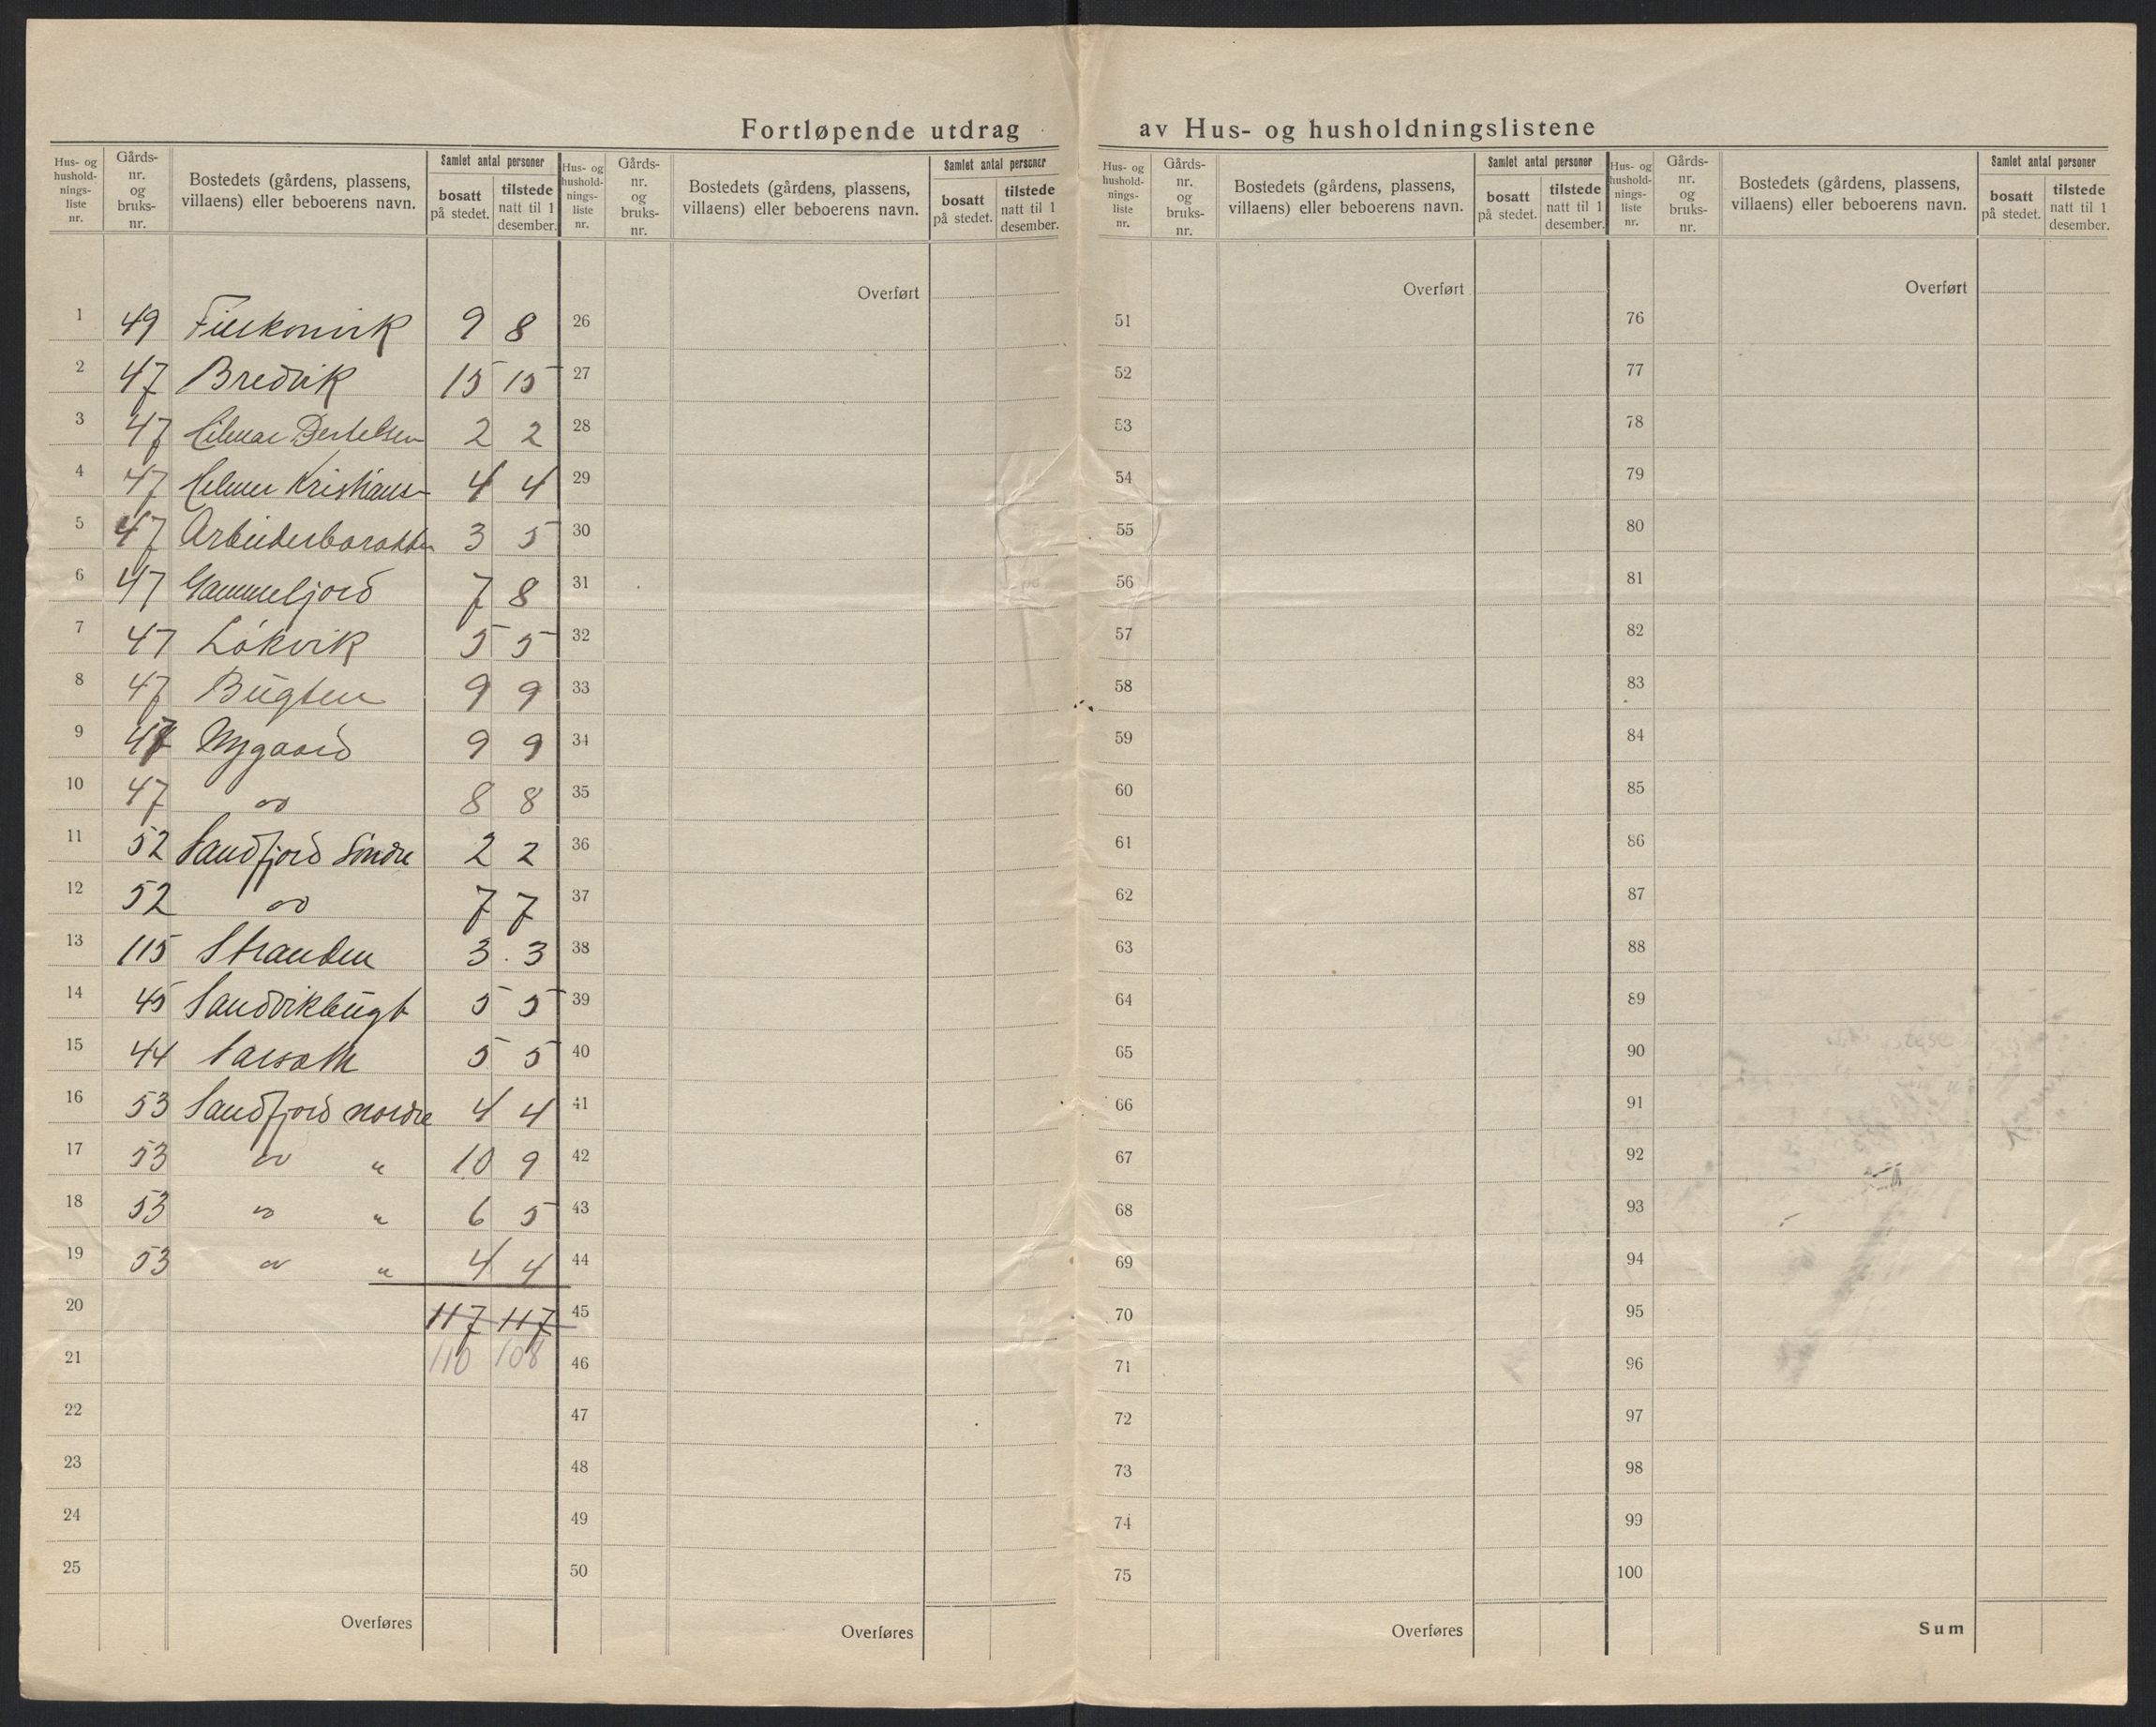 Fortløpende utdrag av Hus- og husholdningslistene
Hus- og hushold- nings- liste nr. | Gårds- nr. og bruks- nr. | Bostedets (gårdens, plassens, villaens) eller beboerens navn. | Samlet antal personer | bosatt på stedet. | tilstede natt til 1 desember.
Hus- og hushold- nings- liste nr. | Gårds- nr. og bruks- nr. | Bostedets (gårdens, plassens, villaens) eller beboerens navn. | Samlet antal personer | bosatt på stedet. | tilstede natt til 1 desember.
Hus- og hushold- nings- liste nr. | Gårds- nr. og bruks- nr. | Bostedets (gårdens, plassens, villaens) eller beboerens navn. | Samlet antal personer | bosatt på stedet. | tilstede natt til 1 desember.
Hus- og hushold- nings- liste nr. | Gårds- nr. og bruks- nr. | Bostedets (gårdens, plassens, villaens) eller beboerens navn. | Samlet antal personer | bosatt på stedet. | tilstede natt til 1 desember.
1 49 9 8
2 47 Bredvik 15 15
3 47 Hilmar Bertelsen 2 2
4 47 Kristians 4 4
5 47 Arbeiderbarakken 3 5
6 47 Gammeljord 7 8
7 47 Løkvik 5 5
8 47 Bugten 9 9
9 47 Nygaard 9 9
10 47 do 8 8
11 52 Sandfjord Söndre 2 2
12 52 do 7 7
13 115 Stranden 3 . 3
14 45 Sandvikbugt 5 5
15 44 5 5
16 53 Sandfjord nordre 4 4
17 53 do " 10 9
18 53 do " 6 5
19 53 do " 4 4
20 117 117
21 110 108
22
23
24
25
Overføres
Overført
26
27
28
29
30
31
32
33
34
35
36
37
38
39
40
41
42
43
44
45
46
47
48
49
50
Overføres
Overført
51
52
53
54
55
56
57
58
59
60
61
62
63
64
65
66
67
68
69
70
71
72
73
74
75
Overføres
Overført
76
77
78
79
80
81
82
83
84
85
86
87
88
89
90
91
92
93
94
95
96
97
98
99
100
Sum